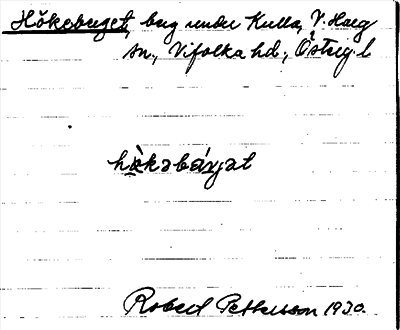 Hökebuget, bug under Kulla, V. Harg
sn, Vifolka hd., Östergl
Robert Pettersson 1930.